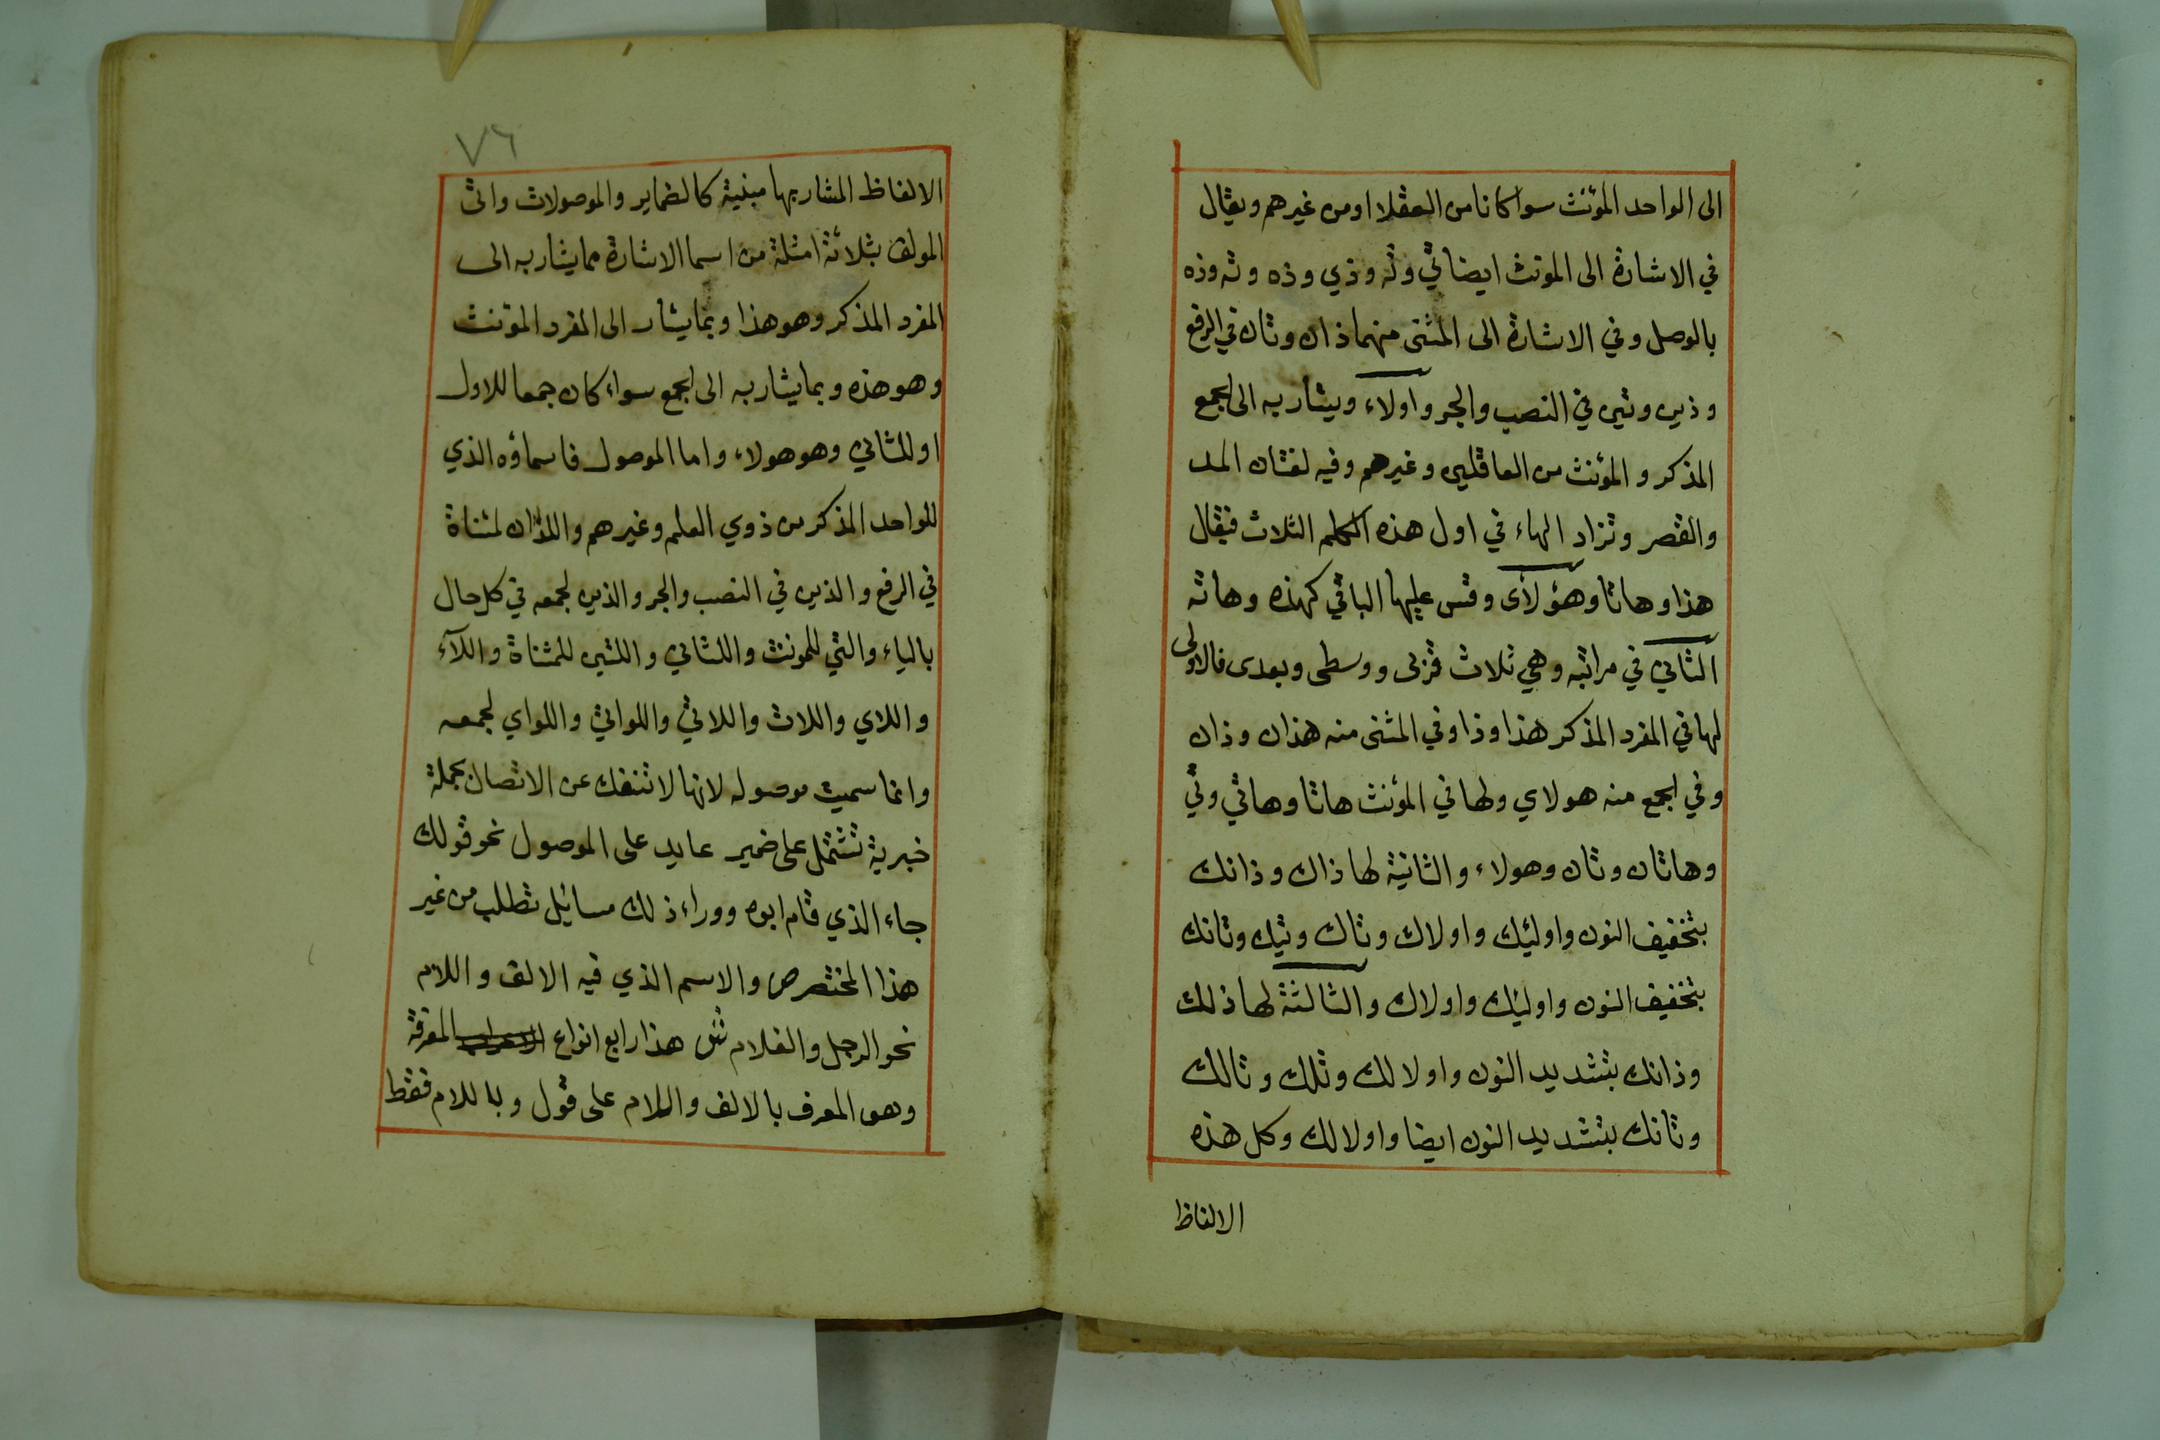 الى الواحد المؤنث سوا كانا من العقلا او من غيرهم ويقال
في الاشارة الى المونث ايضا تي وته وذي وذه وته وذه
بالوصل وفي الاشارة الى المثنى منهما ذان وتان في الرفع
وذين وتين في النصب والجر واولاء ويشار به الى الجمع
المذكر والمؤنث من العاقلين وغيرهم وفيه لغتان المد
والقصر وتزاد الهاء في اول هذه الكلم الثلاث فيقال
هذا وهاتا وهؤلأى وقس عليها الباقي كهذه وهاته
الثاني في مراتبه وهي ثلاث قربى ووسطى وبعدى فالاولى
لها في المفرد المذكر هذا وذا وفي المثنى منه هذان وذان
وفي الجمع منه هولاي ولها في المؤنث هاتا وهاتي وتي
وهاتان وتان وهولاء والثانية لها ذاك وذانك
بتخفيف النون واوليك واولاك وتاك وتيك وتانك
بتخفيف النون واوليك واولاك والثالثة لها ذلك
وذانك بتشديد النون واولالك وتلك وتالك
وتانك بتشديد النون ايضا واولالك وكل هذه
الالفاظ
٧٦
الالفاظ المشار بها مبنية كالضماير والموصولات واتى
المولف بثلاثة امثلة من اسما الاشارة مما يشار به الى
المفرد المذكر وهو هذا وبما يشار الى المفرد المؤنث
وهو هذه وبما يشار به الى الجمع سواء كان جمعا للاول
او للثاني وهو هولاء واما الموصول فاسماؤه الذي
للواحد المذكر من ذوي العلم وغيرهم واللذان لمثناة
في الرفع والذين في النصب والجر والذين لجمعه في كل حال
بالياء والتي للمونث واللتاني واللتين للمثناة واللآء
واللاي واللات واللاتي واللواتي واللواي لجمعه
وانما سميت موصوله لانها لا تنفك عن الاتصال بجملة
خبرية تشتمل على ضمير عايد على الموصول نحو قولك
جاء الذي قام ابوه ووراء ذلك مسائل تطلب من غير
هذا المختصر ص والاسم الذي فيه الالف واللام
نحو الرجل والغلام ش هذا رابع انواع المعرفة
وهو المعرف بالالف واللام على قول وباللام فقط